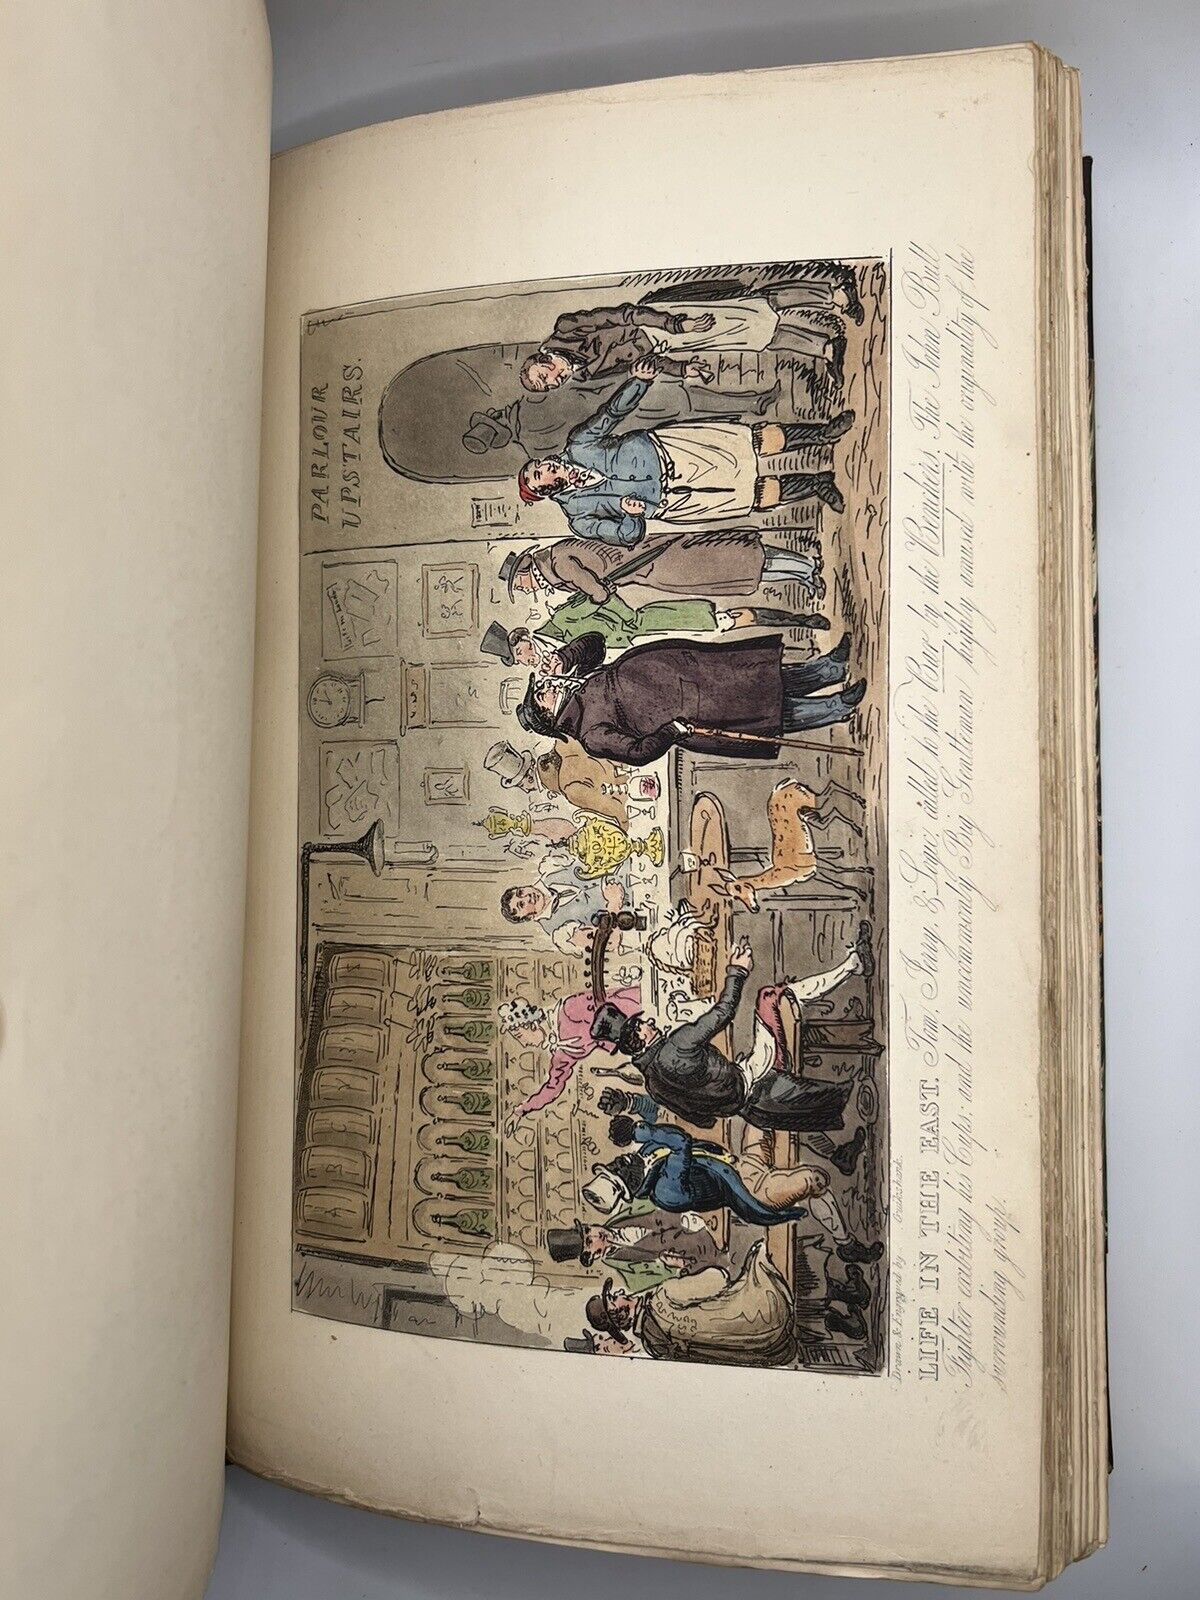 PARLOUR
UPSTAIRS.
A B C D E F G X Y Z
Drawn & Engraved by Cruikshank.
LIFE IN THE EAST. Tom, Jerry, & Logic, called to the Bar by the Benchers. The John Bull
Fighter exhibiting his Cups; and the uncommonly Big Gentleman, highly amused with the originality of the
surrounding group.